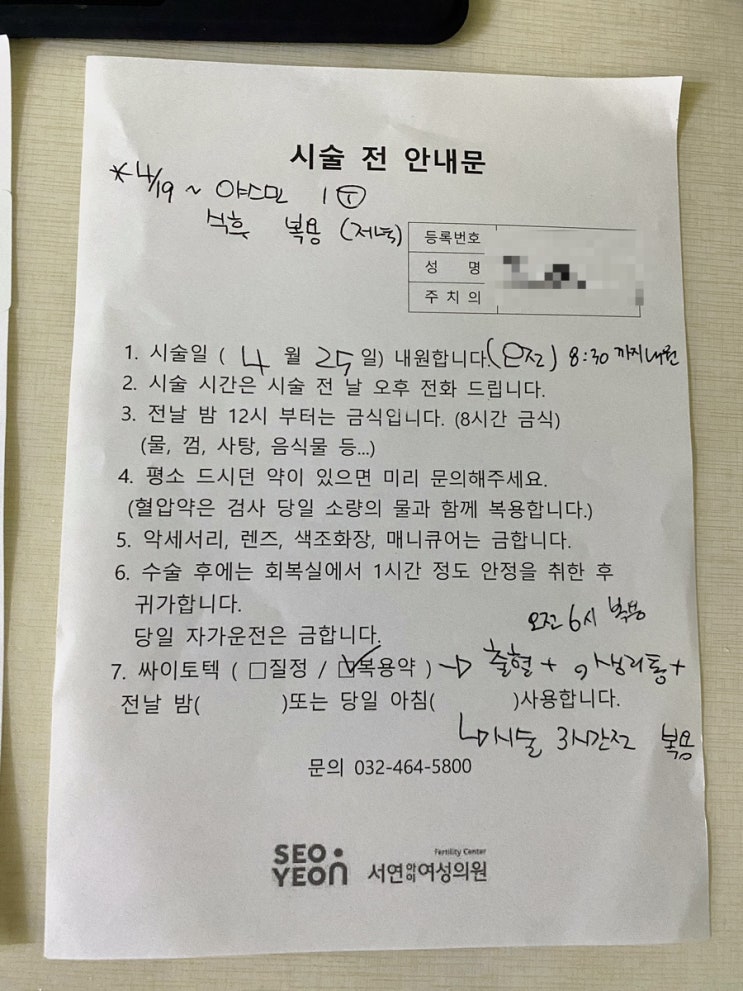 시술 전 안내문
*4/19 ~ 야스민 1 Ⓣ
석후 복용 (저녁)
등록번호
성 명
주치의
1. 시술일 ( 4 월 25 일) 내원합니다. (오전) 8:30 까지 내원
2. 시술 시간은 시술 전 날 오후 전화 드립니다.
3. 전날 밤 12시 부터는 금식입니다. (8시간 금식)
(물, 껌, 사탕, 음식물 등...)
4. 평소 드시던 약이 있으면 미리 문의해주세요.
(혈압약은 검사 당일 소량의 물과 함께 복용합니다.)
5. 악세서리, 렌즈, 색조화장, 매니큐어는 금합니다.
6. 수술 후에는 회복실에서 1시간 정도 안정을 취한 후
귀가합니다.
당일 자가운전은 금합니다.
오전 6시 복용
7. 싸이토텍 ( □질정 / ☑복용약 ) → 출혈+ 생리통+
전날 밤( )또는 당일 아침( )사용합니다.
시술 3시간전 복용
문의 032-464-5800
SEO
YEON
Fertility Center
서연아이여성의원